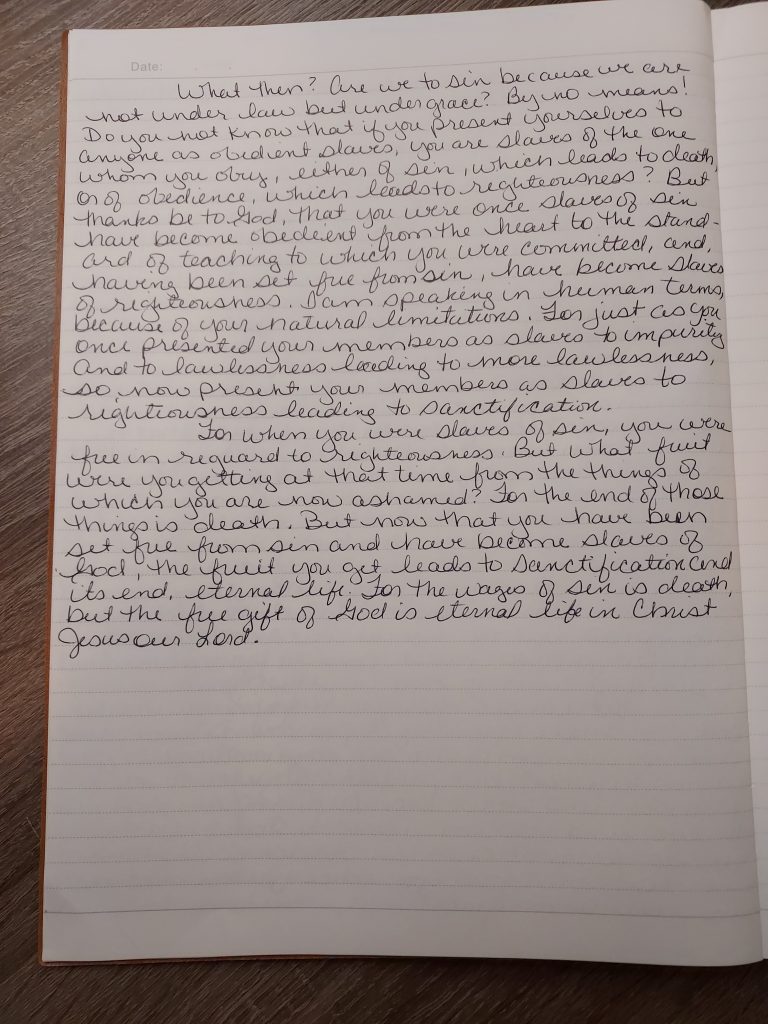 Date:
What then? Are we to sin because we are
not under law but under grace? By no means!
Do you not know that if you present yourselves to
anyone as obedient slaves, you are slaves of the one
whom you obey, either of sin, which leads to death,
or of obedience, which leads to righteousness? But
thanks be to God, that you were once slaves of sin
have become obedient from the heart to the stand-
ard of teaching to which you were committed, and,
having been set free from sin, have become slaves
of righteousness. I am speaking in human terms,
because of your natural limitations. For just as you
once presented your members as slaves to impurity
and to lawlessness leading to more lawlessness,
so, now present your members as slaves to
righteousness leading to sanctification.
For when you were slaves of sin, you were
free in reguard to righteousness. But what fruit
were you getting at that time from the things of
which you are now ashamed? For the end of those
things is death. But now that you have been
set free from sin and have become slaves of
God, the fruit you get leads to sanctification and
its end, eternal life. For the wages of sin is death,
but the free gift of God is eternal life in Christ
Jesus our Lord.